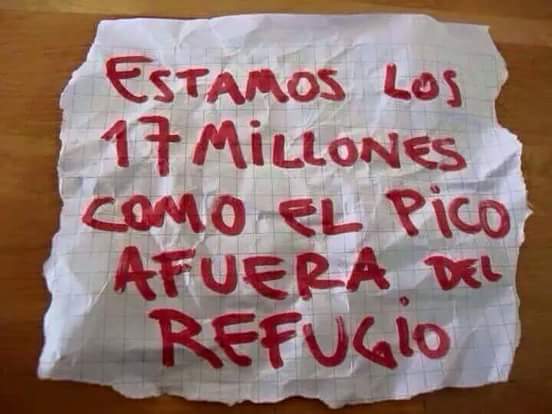 ESTAMOS LOS
17 MiLLONES
COMO EL PiCO
AFUERA DEL
REFUGiO